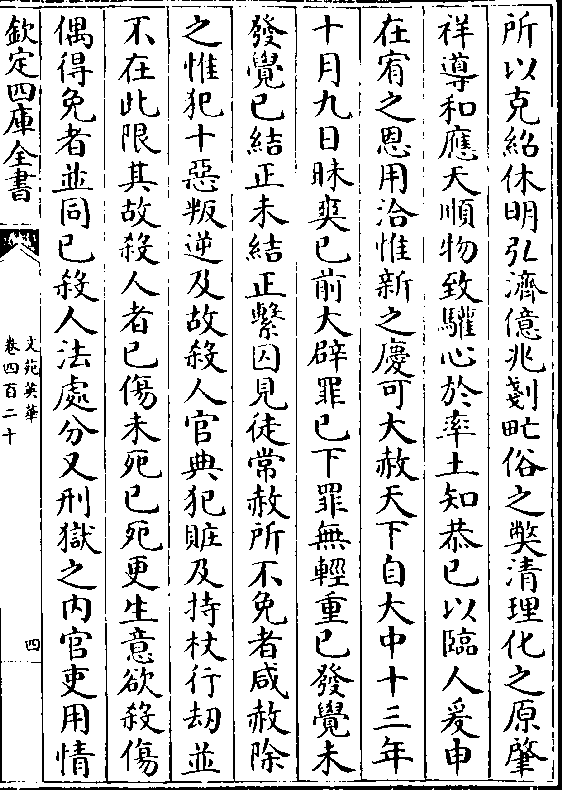 所以克紹休明弘濟億兆剗甿俗之弊清理化之原肇
祥導和應天順物致驩心於率土知恭已以臨人爰申
在宥之恩用洽惟新之慶可大赦天下自大中十三年
十月九日昧爽已前大辟罪已下罪無輕重已發覺未
發覺已結正未結正繫囚見徒常赦所不免者咸赦除
之惟犯十惡叛逆及故殺人官典犯賍及持杖行刼並
不在此限其故殺人者已傷未死已死更生意欲殺傷
偶得免者並同已殺人法處分又刑獄之內官吏用情
欽定四庫全書
文苑英華
卷四百二十
四